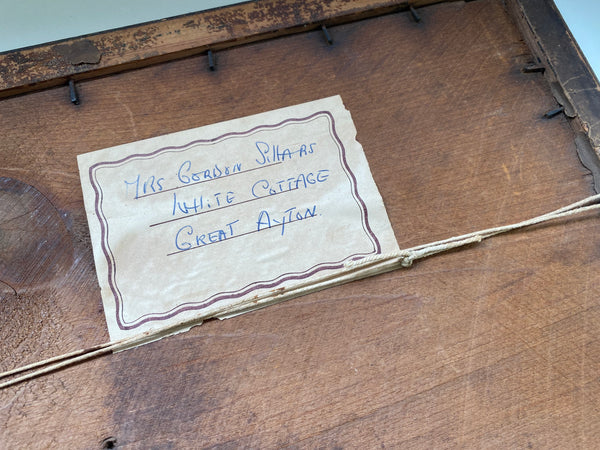 MRS GORDON SILLARS
WHITE COTTAGE
GREAT AYTON.